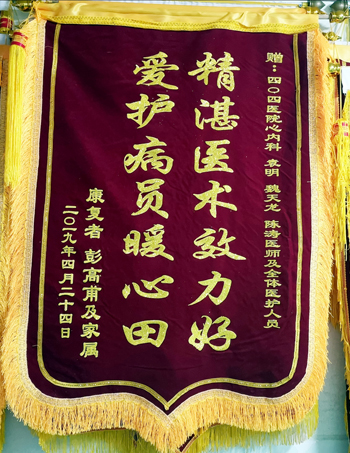 赠：四〇四医院心内科 袁明 魏天龙 陈涛医师及全体医护人员
精湛医术效力好
爱护病员暖心田
康复者 彭高甫及家属
二〇一九年四月二十四日